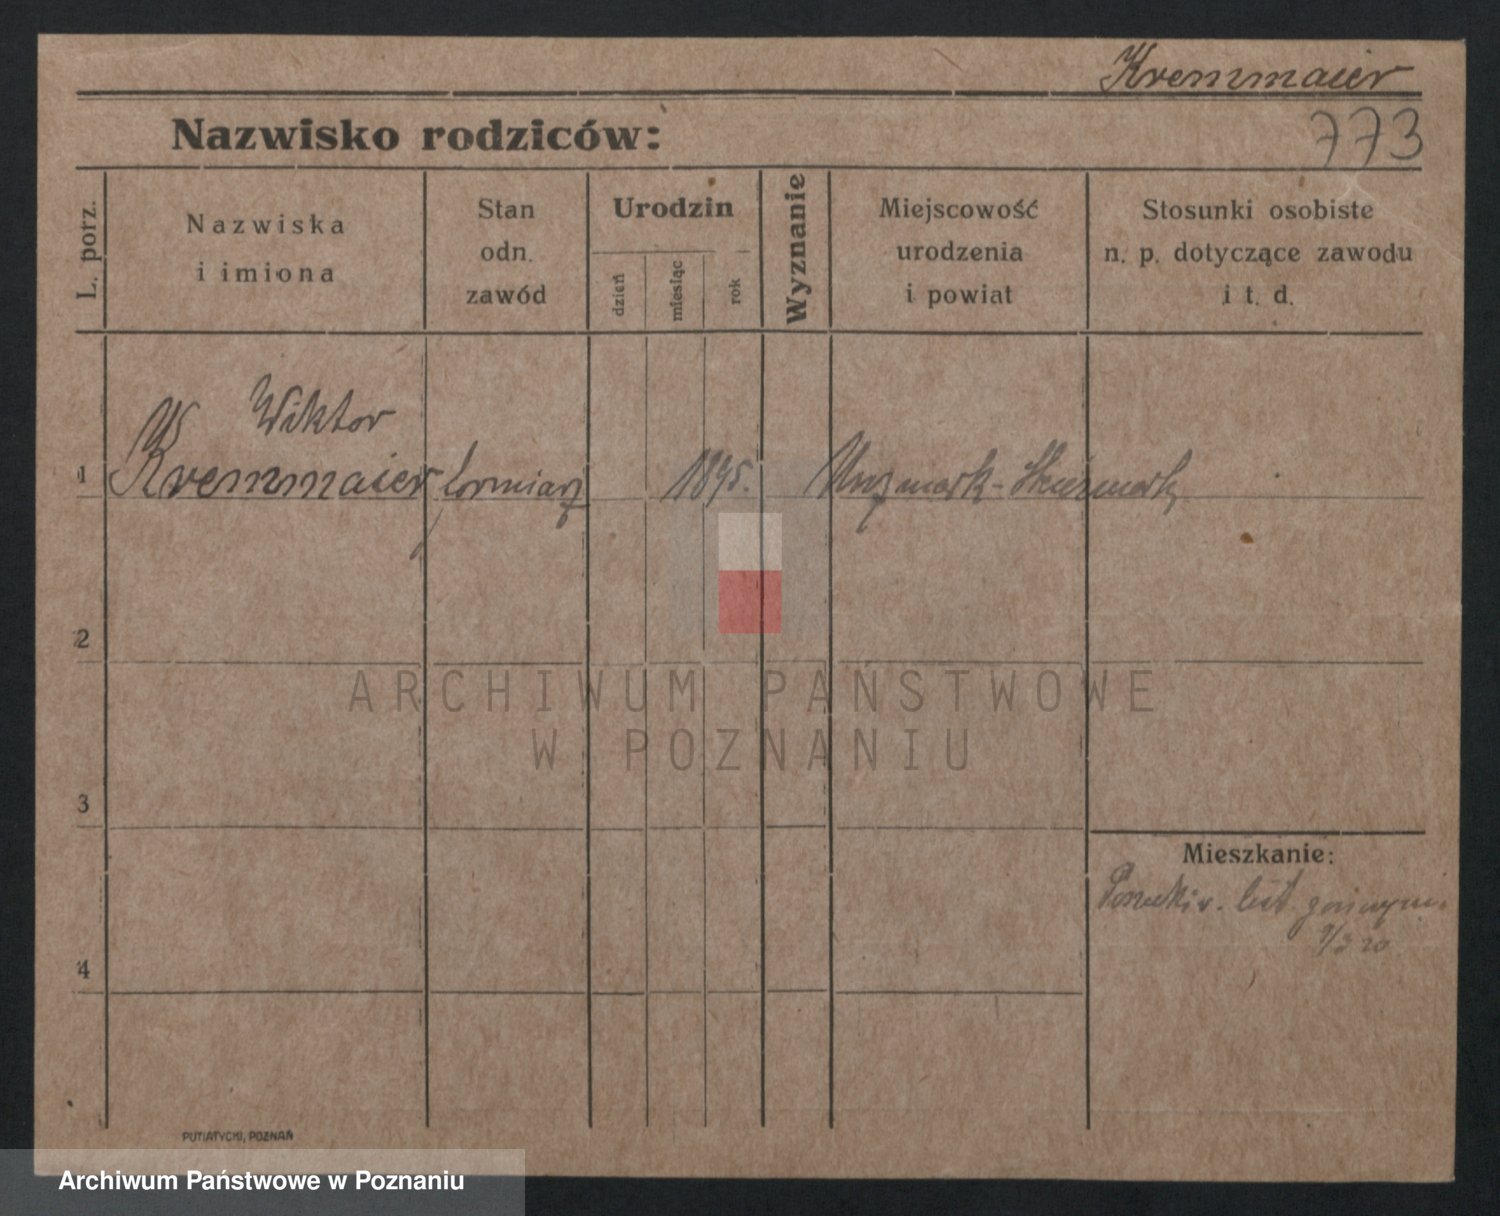 Kremmaier
773
Nazwisko rodziców:
L. porz.
Nazwiska
i imiona
Stan
odn.
zawód
Urodzin
dzień
miesiąc
rok
Wyznanie
Miejscowość
urodzenia
i powiat
Stosunki osobiste
n. p. dotyczące zawodu
i t. d.
Wiktor
1 Kremmaier, 1895.
2
ARCHIWUM PAŃSTWOWE
W POZNANIU
3
Mieszkanie:
9/3 20
4
PUTIATYCKI, POZNAŃ
Archiwum Państwowe w Poznaniu